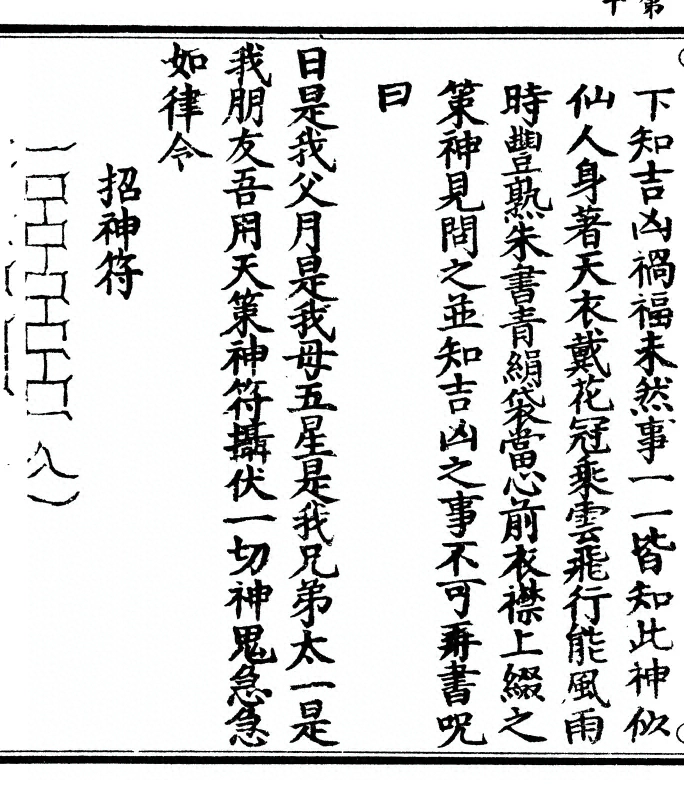 下知吉凶禍福未然事一一皆知此神似
仙人身著天衣戴花冠乘雲飛行能風雨
時豐熟朱書青絹袋當心前衣襟上綴之
策神見問之並知吉凶之事不可再書呪
曰
日是我父月是我母五星是我兄弟太一是
我朋友吾用天策神符攝伏一切神鬼急急
如律令
招神符